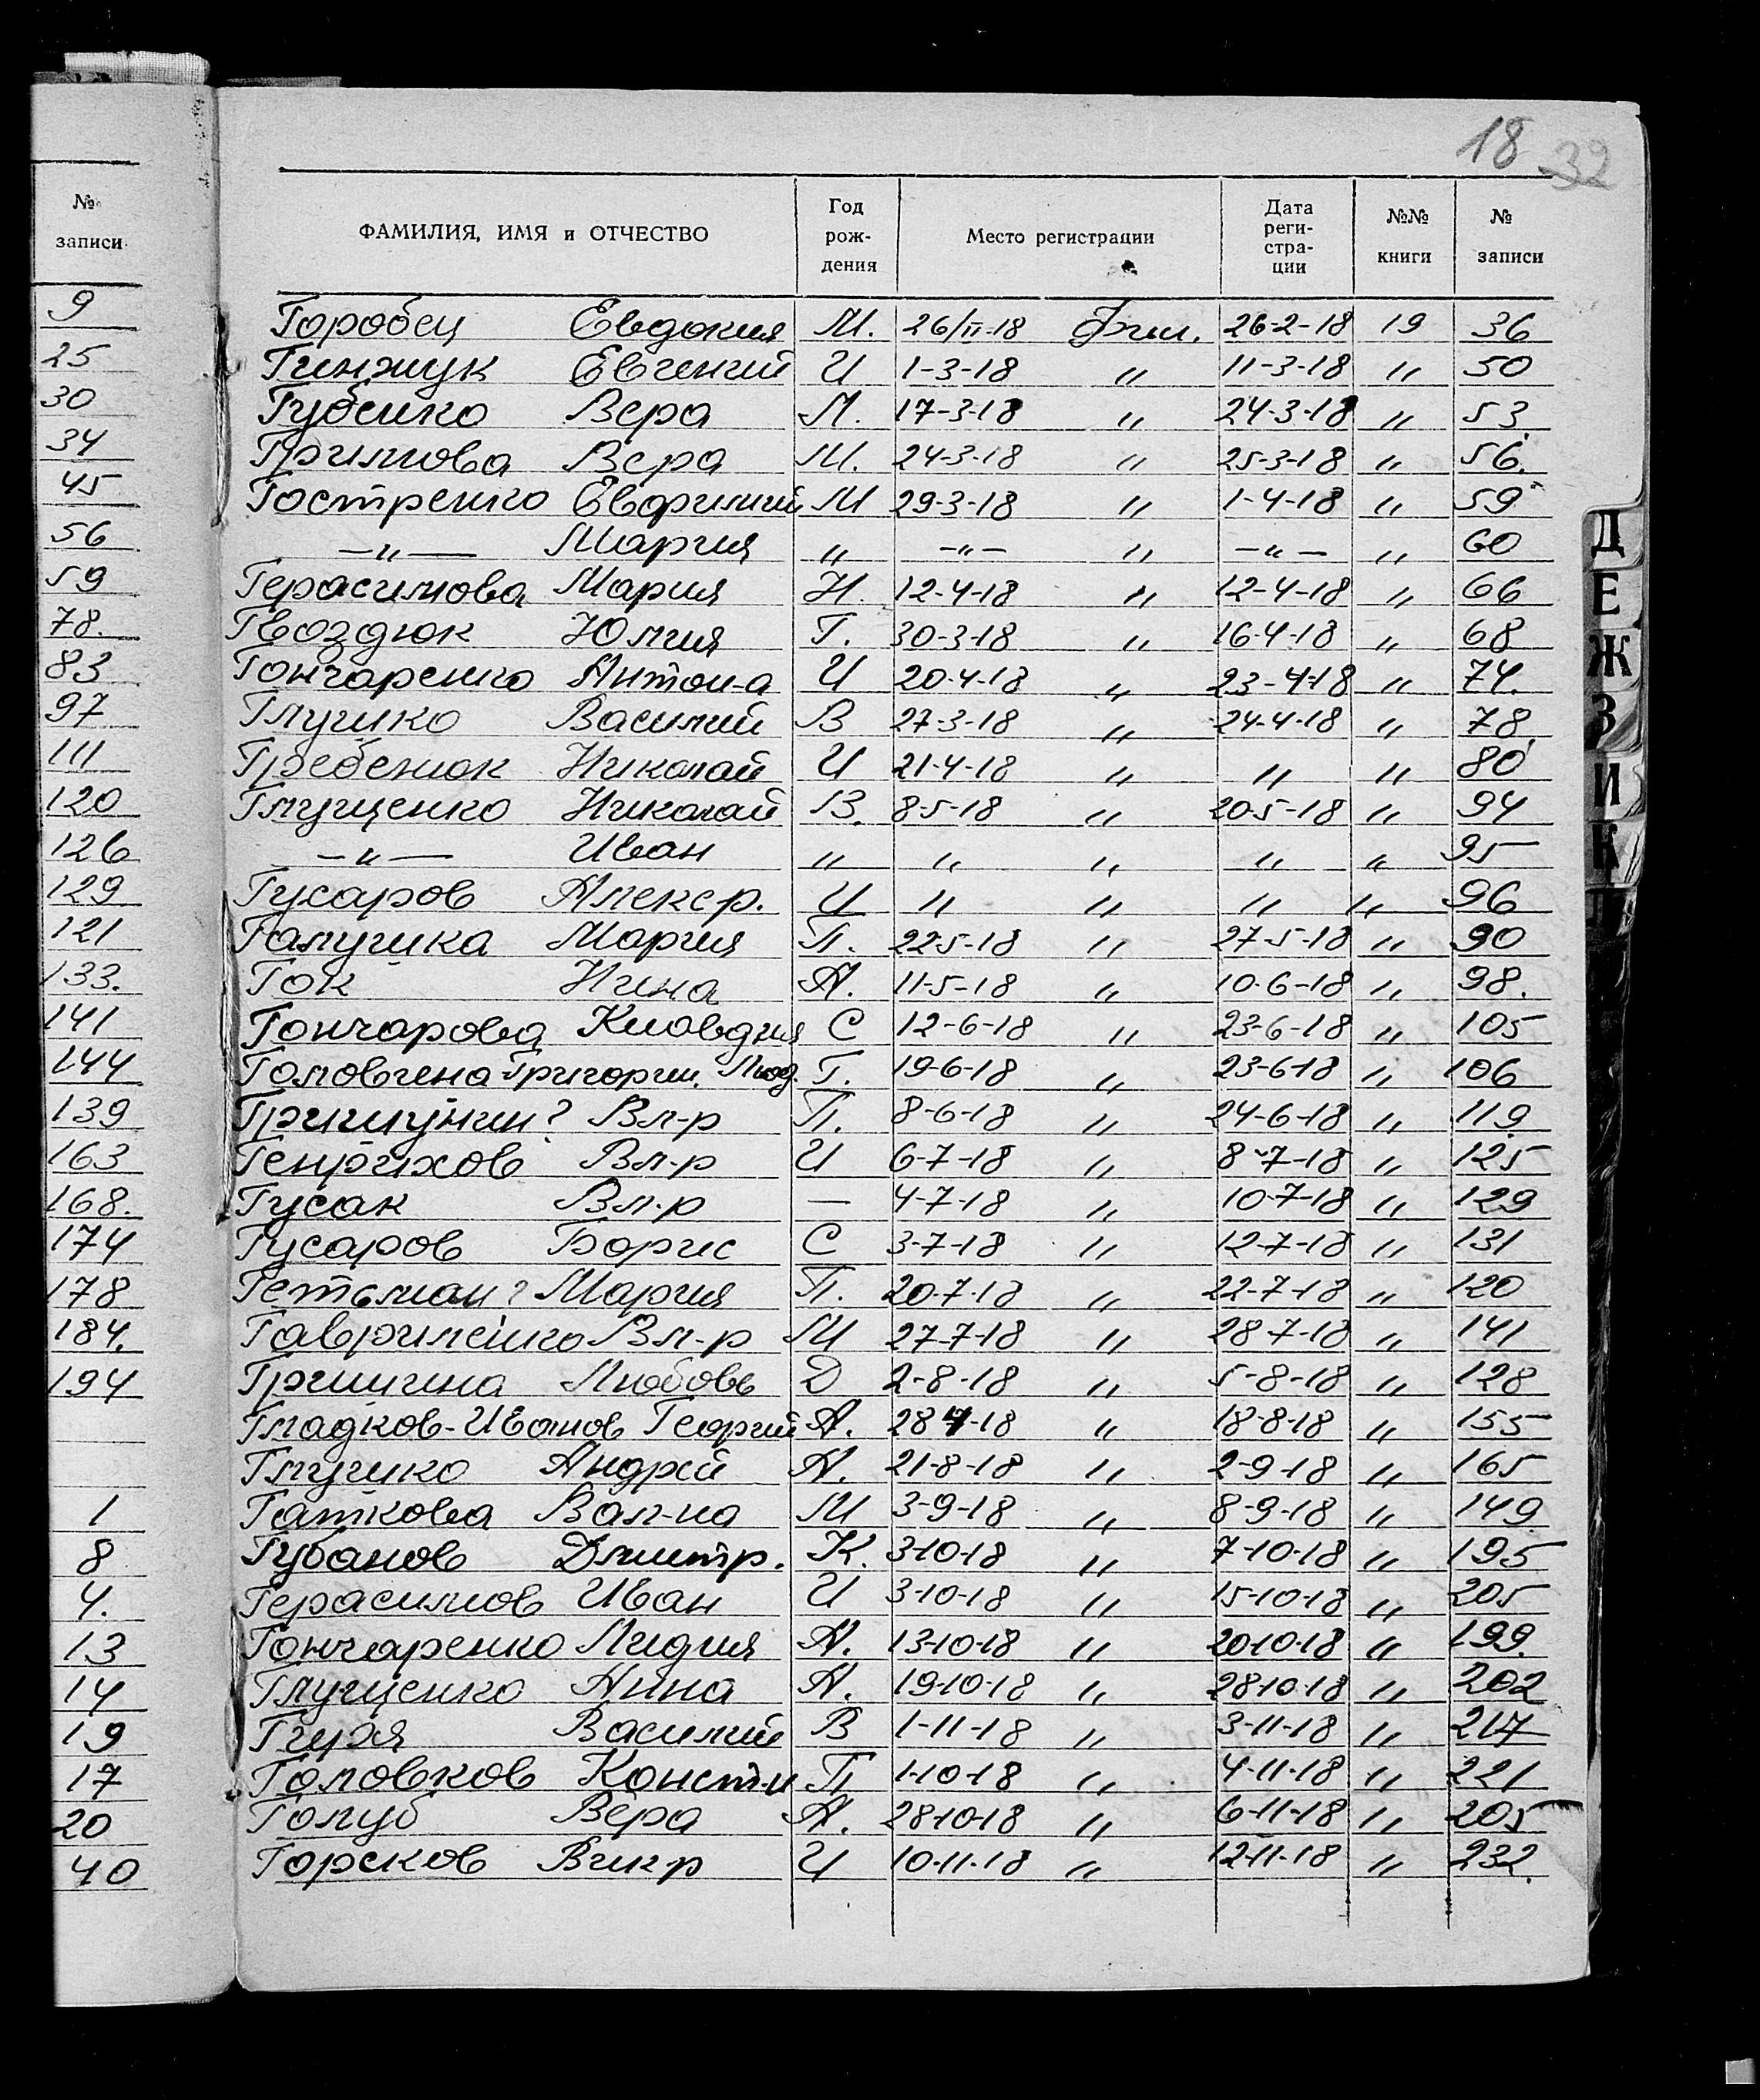 18 32
№ записи
ФАМИЛИЯ, ИМЯ и ОТЧЕСТВО Год рождения Место регистрации Дата регистрации №№ книги № записи
9 Горобец Евдокия М. 26/II-18 Фил. 26-2-18 19 36
25 Гинжук Евгений И 1-3-18 " 11-3-18 " 50
30 Губенко Вера М. 17-3-18 " 24-3-18 " 53
34 Гримова Вера М. 24-3-18 " 25-3-18 " 56.
45 Гостренко Евфимий М 29-3-18 " 1-4-18 " 59
56 —"— Мария " —"— " —"— " 60
59 Герасимова Мария Н. 12-4-18 " 12-4-18 " 66
78. Гвоздюк Юлия Г. 30-3-18 " 16-4-18 " 68
83 Гончаренко Антон-а И 20-4-18 " 23-4-18 " 74.
97 Глушко Василий В 27-3-18 " 24-4-18 " 78
111 Гребенюк Николай И 21-4-18 " " " 80
120 Глущенко Николай В. 8-5-18 " 20-5-18 " 94
126 —"— Иван " " " " " 95
129 Гусаров Алекср. И " " " " 96
121 Галушка Мария П. 22-5-18 " 27-5-18 " 90
133. Гок Нина А. 11-5-18 " 10-6-18 " 98.
141 Гончарова Клавдия С 12-6-18 " 23-6-18 " " 105
144 Головчена-Григории. Люд. Г. 19-6-18 " 23-6-18 " 106
139 Гришунин? Вл-р П. 8-6-18 " 24-6-18 " 119
163 Генрихов Вл-р И 6-7-18 " 8-7-18 " 125
168. Гусак Вл-р — 4-7-18 " 10-7-18 " 129
174 Гусаров Борис С 3-7-18 " 12-7-18 " 131
178 Гетьман? Мария П. 20-7-18 " 22-7-18 " 120
184. Гавриленко Вл-р М 27-7-18 " 28-7-18 " 141
194 Гришина Любовь Д 2-8-18 " 5-8-18 " 128
Гладков-Иванов Георгий А. 28 7-18 " 18-8-18 " 155
Глушко Андрей А. 21-8-18 " 2-9-18 " 165
1 Гаткова Вал-на М 3-9-18 " 8-9-18 " 149
8 Губанов Дмитр. К. 3-10-18 " 7-10-18 " 195
4. Герасимов Иван И 3-10-18 " 15-10-18 " 205
13 Гончаренко Лидия А. 13-10-18 " 20-10-18 " 199
14 Глущенко Анна А. 19-10-18 " 28-10-18 " 202
19 Василий В 1-11-18 " 3-11-18 " 217
17 Головков Конст-н П 1-10-18 " 4-11-18 " 221
20 Голуб Вера А. 28-10-18 " 6-11-18 " 205
40 Горсков Вик-р И 10-11-18 " 12-11-18 " 232.
Д
Е
Ж
З
И
К